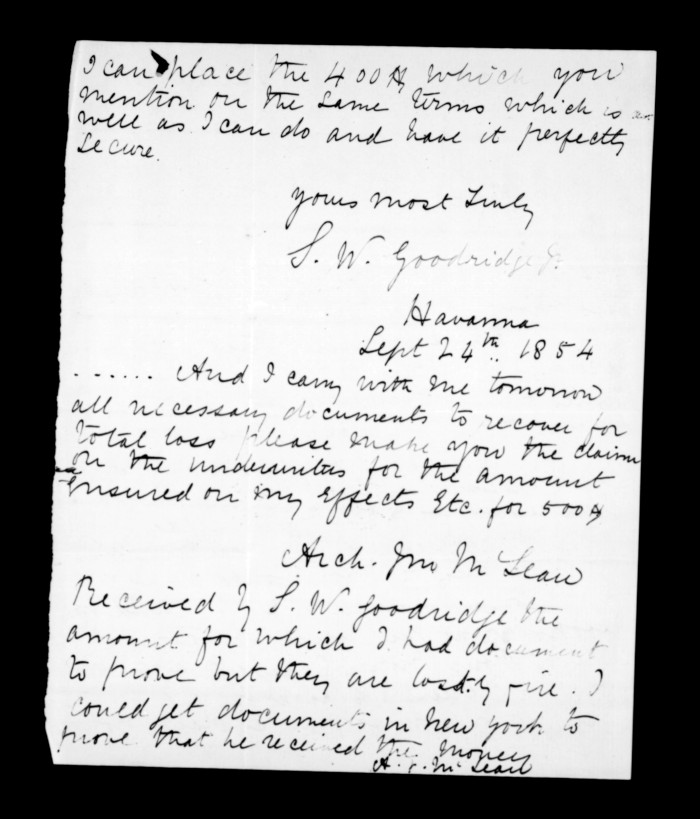 I can place the 400$ which you
mention on the same terms which is as
well as I can do and have it perfectly
Secure.
yours most Truly
S. W. Goodridge Jr.
Havanna
Sept 24th. 1854
...... And I carry with me tomorrow
all necessary documents to recover for
total loss please make you the claim
on the underwriters for the amount
Ensured on my Effects Etc. for 500$
Arch. Jno McLean
Received by S. W. Goodridge the
amount for which I had document
to prove but they are lost by fire. I
could get documents in New york to
prove that he received the money
A. J. McLean